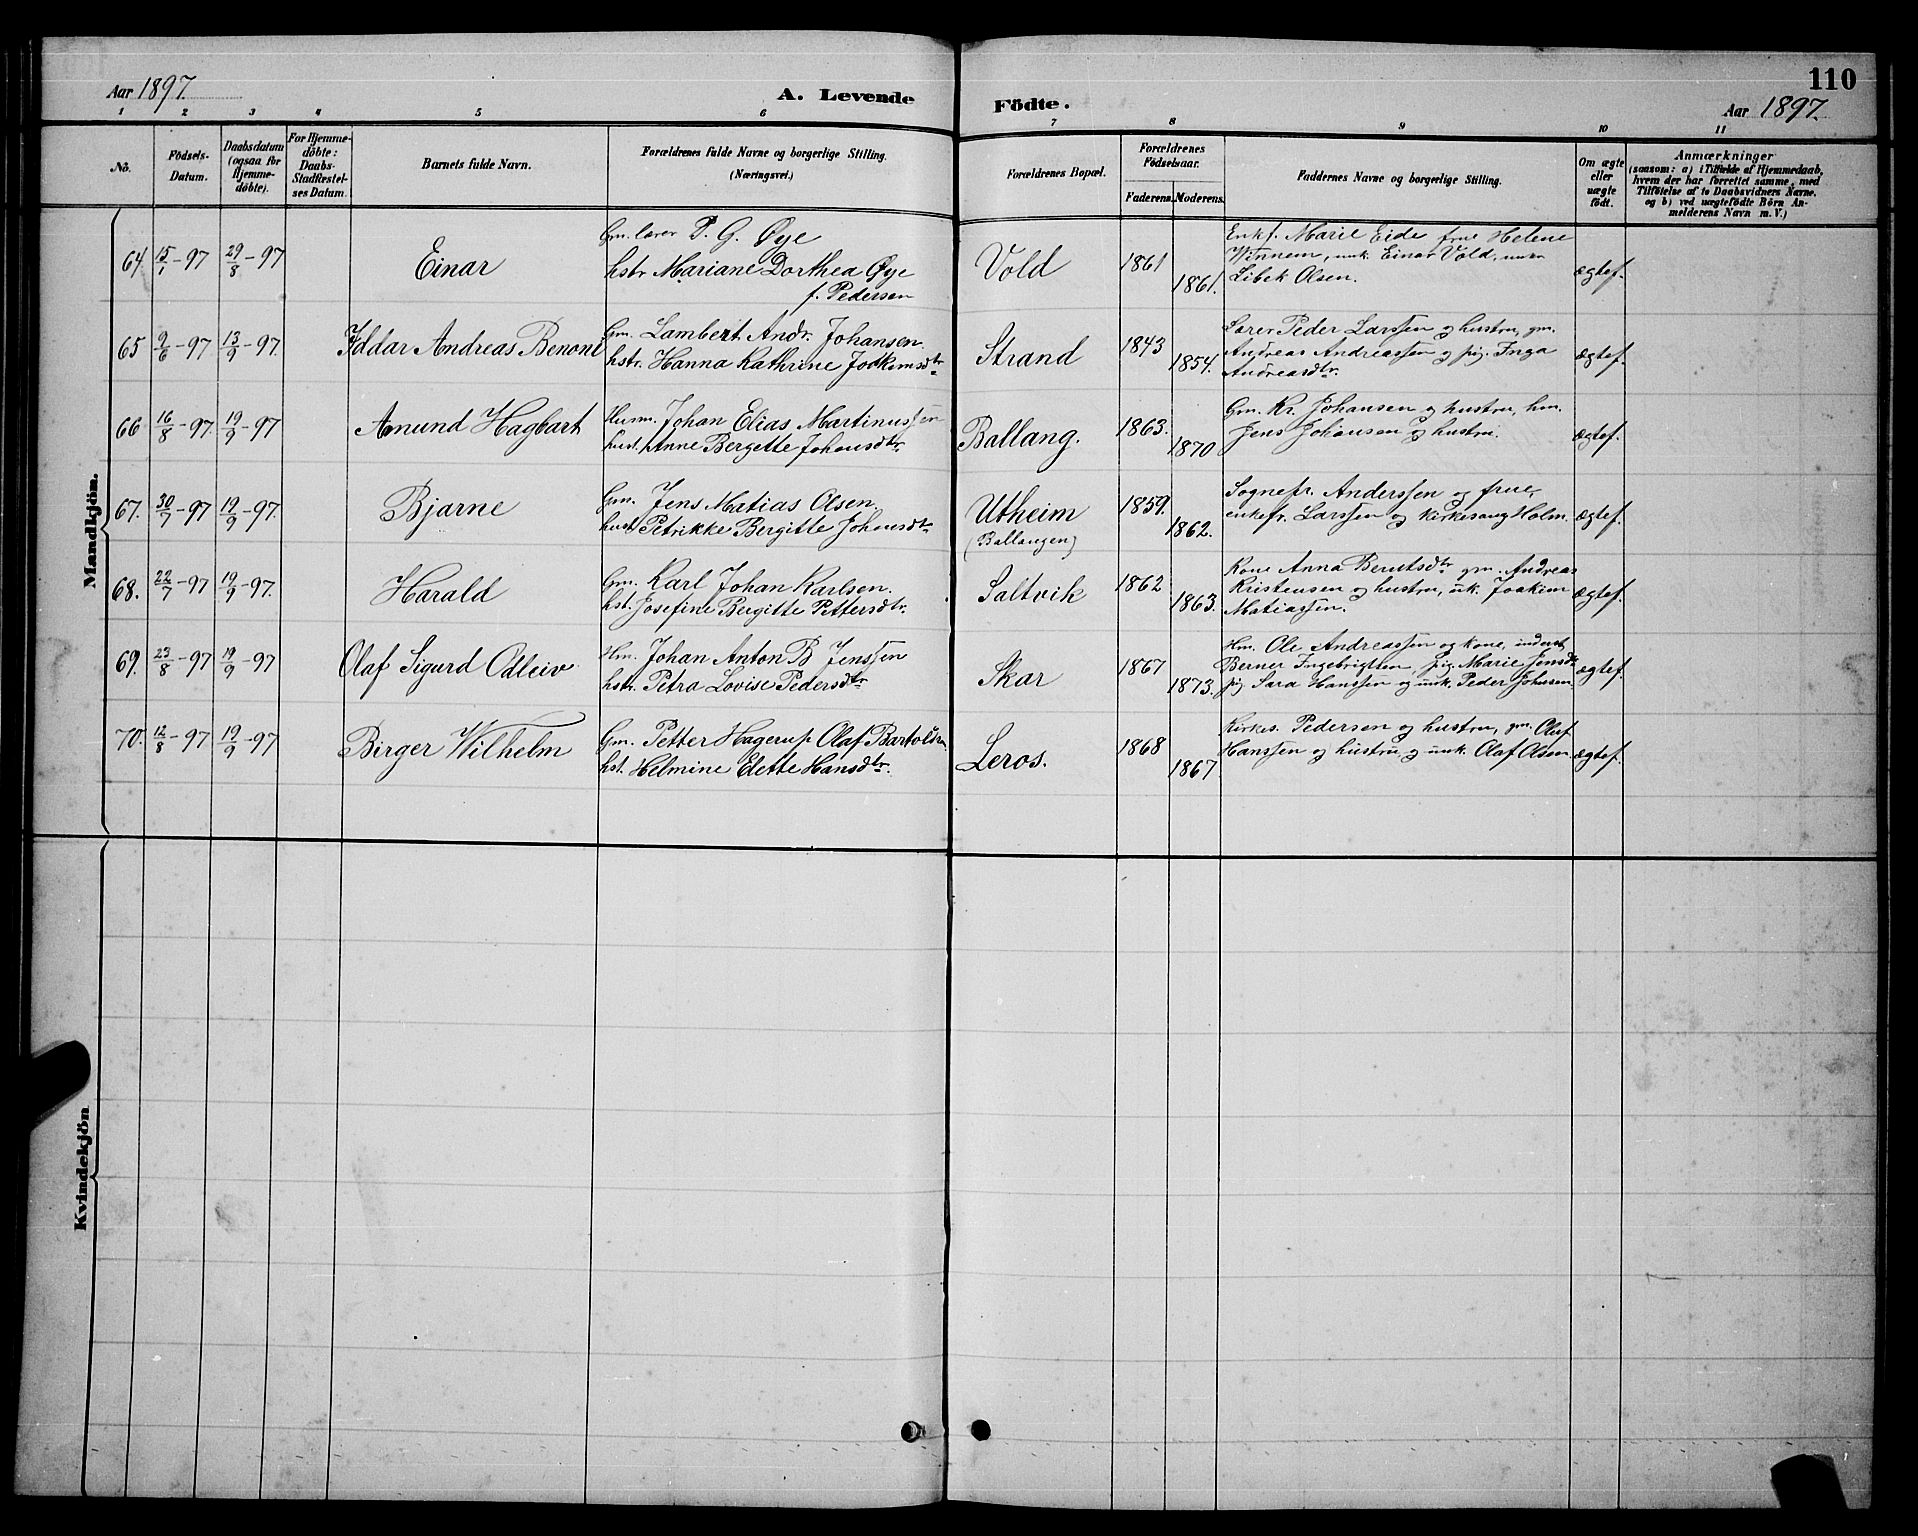 Aar 1897. A. Levende Födte. 110
Aar 1897.
1 2 3 4 5 6 7 8 9 10 11
No. Födsels-Datum. Daabsdatum (ogsaa for Hjemme-döbte). For Hjemme-döbte: Daabs-Stadfæstel-ses Datum. Barnets fulde Navn. Forældrenes fulde Navne og borgerlige Stilling. (Næringsvei.) Forældrenes Bopæl. Forældrenes Födselsaar. Faderens. Moderens. Faddernes Navne og borgerlige Stilling. Om ægte eller uægte födt. Anmærkninger (saasom: a) i Tilfælde af Hjemmedaab, hvem der har forrettet samme, med Tilföielse af to Daabsvidners Navne, og b) ved uægtefödte Börn An-melderens Navn m. V.)
Mandkjön.
64 15/1-97 29/8-97 Einar Gm. lærer P. G. Øye
hstr Mariane Dorthea Øye
f. Pedersen
Vold 1861 1861.
Enkf. Marie Eide frue Helene
Winnem, unk. Einar Vold,
Libek Olsen. ægtef.
65 9/6-97 13/9-97. Iddar Andreas Benoni Gm. Lambert Andr. Johansen
hstr. Hanna Kathrine Joakimsdtr
Strand 1843 1854.
Lærer Peder Larssen og hustru, gm.
Andreas Andreassen og pig. Inga
Andreasdtr. ægtef.
66 16/8-97. 19/9-97 Amund Hagbart Husm. Johan Elias Martinussen
hust. Anne Bergitte Johansdtr
Ballang. 1863. 1870
Gm. Kr. Johansen og hustru, hm.
Jens Johansen og hustru. ægtef.
67. 30/7-97 19/9-97. Bjarne Gm. Jens Matias Olsen
hust Petrikke Bergitte Johansdtr
Utheim
(Ballangen) 1859. 1862.
Sognepr. Anderssen og frue,
enkefr. Larssen og Kirkesang Holm. ægtef.
68. 22/7-97 19/9-97. Harald Gm. Karl Johan Karlsen.
hst. Josefine Bergitte Pettersdtr.
Saltvik 1862 1863.
Kone Anna Berntsdtr gm. Andreas
Kristensen og hustru, uk. Joakim
Matiassen. ægtef.
69. 23/8-97 19/9-97 Olaf Sigurd Odleiv Hm. Johan Anton B Jenssen
hstr. Petra Lovise Pedersdtr
Skar 1867 1873.
Hm. Ole Andreassen og kone, inderst
Berner Ingebrigtsen, pig. Marie Jensdtr
pig Sara Hanssen og unk. Peder Johnsen. ægtef.
70. 12/8-97 19/9-97 Birger Wilhelm Gm. Petter Hagerup Olaf Bartolsen
hst. Helmine Elette Hansdtr.
Leros. 1868 1867.
Kirkes. Pedersen og hustru, gm. Oluf
Hanssen og hustru, og unk. Olaf Olsen ægtef.
Kvindekjön